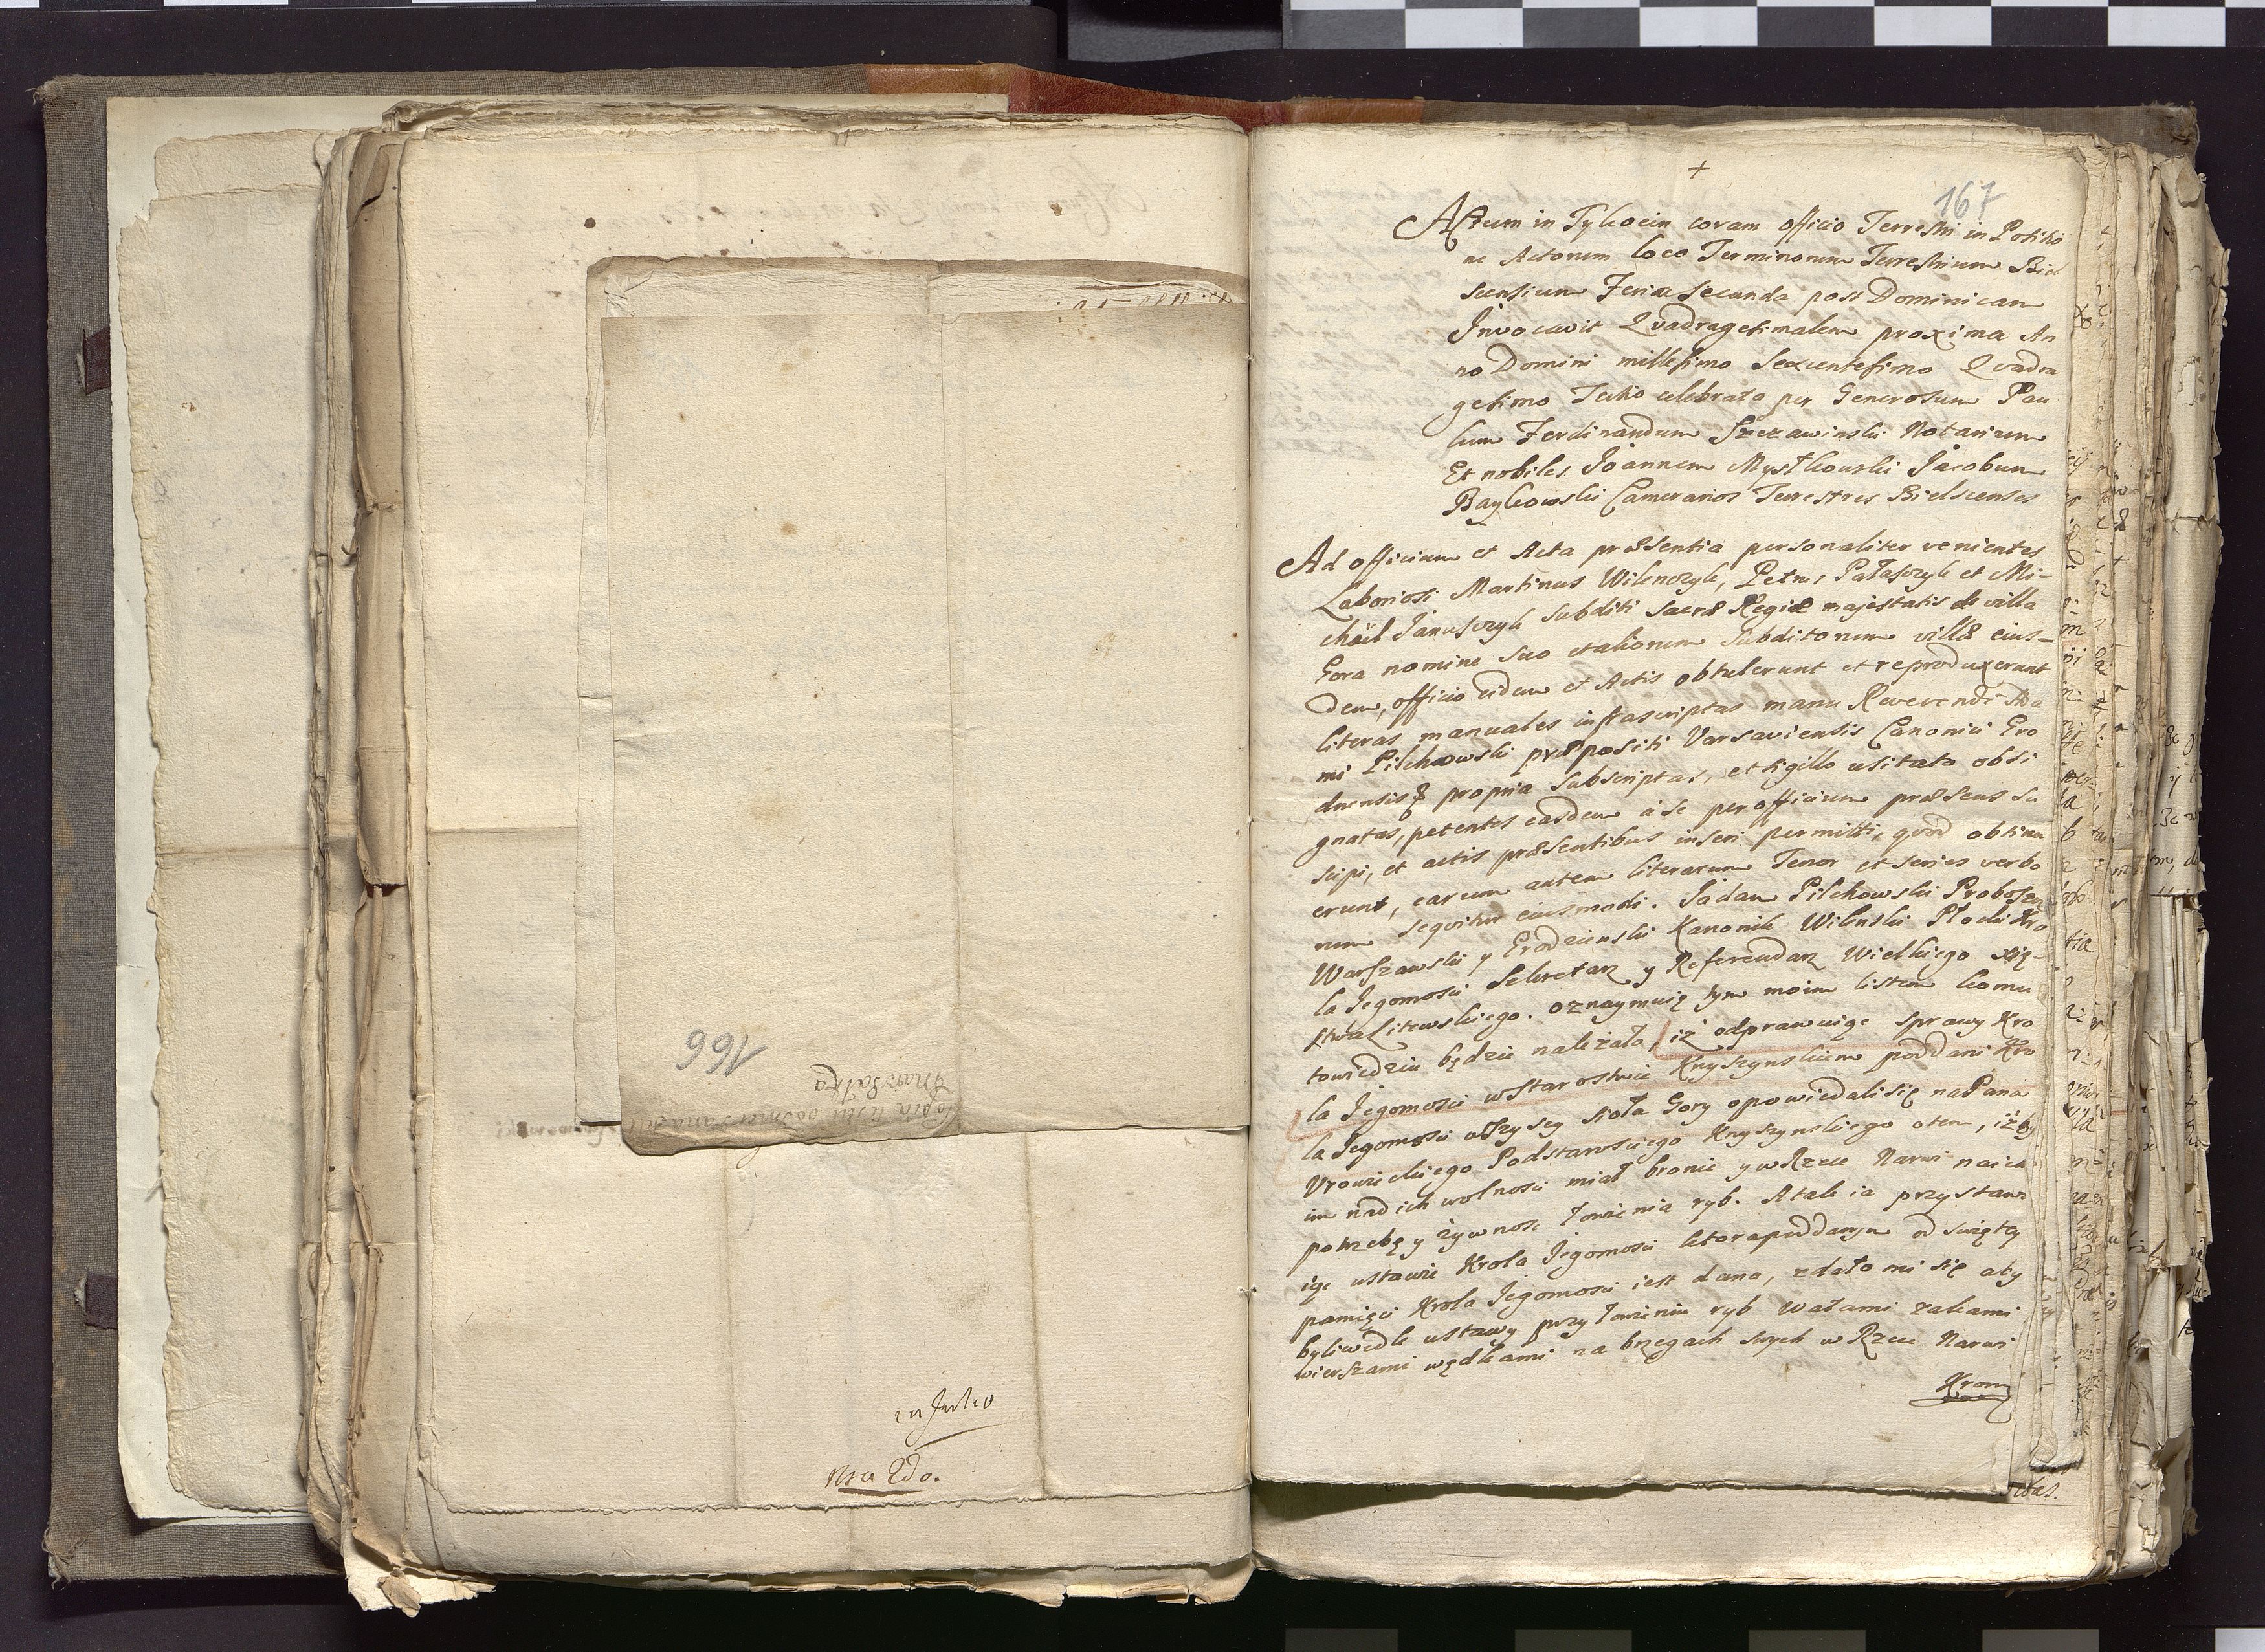 166
Kopia listu
Marszałka
in Julio
Nro 2do.
+
167
Actum in Tykocin coram officio Terrestri in Positio
ne Actorum loco Terminorum Terrestrium Biel
scensium Feria secunda post Dominicam
Invocavit Qvadragesimalem proxima An
no Domini millesimo Sexcentesimo Qvadra
gesimo Tertio celebrata per Generosum Pau
lum Ferdinandum Szczawinski Notarium
Et nobiles Joannem Mystkowski Jacobum
Baykowski Camerarios Terrestres Bielscenses
Ad officium et Acta præsentia personaliter venientes
Laboriosi Martinus Wilenczyk, Petrus Patasczyk et Mi-
chaël Janusczyk subditi Sacræ Regiæ majestatis de villa
Gora nomine suo et aliorum Subditorum villæ eius-
dem, officio eidem et Actis obtulerunt et reproduxerunt
literas manuales infrascriptas manu Reverendi Ada
mi Pilchowski præpositi Varsaviensis Canonici Gro
dnensisq propria subscriptas, et sigillo usitato obsi
gnatas, petentes easdem a se per officium præsens su
scipi, et actis præsentibus inseri permitti, qvod obtinu
erunt, earum autem literarum Tenor et series verbo
rum seqvitur eiusmodi. Ja Adam Pilchowski Proboszcz
Warszawski y Grodzienski Kanonik Wilenski Płocki Kro
la Jegomosci Sekretarz y Referendarz Wielkiego Xię-
stwa Litewskiego. oznaymuię tym moim listem komu
to wiedziec będzie należało, iż odprawuiąc sprawy Kro
la Jegomosci w Starostwie Knyszynskiem poddani Kro
la Jegomosci wszyscy sioła Gory opowiedali się na Pana
Urowieckiego Podstarosciego Knyszynskiego o tem, iżby
im nad ich wolnosci miał bronic y w Rzece Narwi na ich
potrzebę y żywnosc łowienia ryb. A tak ia przystawu
iąc ustawie Krola Jegomosci ktora poddanym od swiętey
pamięci Krola Jegomosci iest dana, zdało mi się aby
byli wedle ustawy przy łowieniu ryb wałami zakami
wierszami wędkami na brzegach swych w Rzece Narwi
Krom